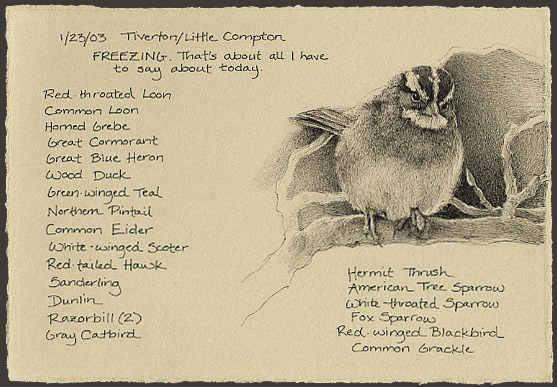 1/23/03 Tiverton/Little Compton
FREEZING. That's about all I have
to say about today.
Red-throated Loon
Common Loon
Horned Grebe
Great Cormorant
Great Blue Heron
Wood Duck
Green-winged Teal
Northern Pintail
Common Eider
White-winged Scoter
Red-tailed Hawk
Sanderling
Dunlin
Razorbill (2)
Gray Catbird
Hermit Thrush
American Tree Sparrow
White-throated Sparrow
Fox Sparrow
Red-winged Blackbird
Common Grackle